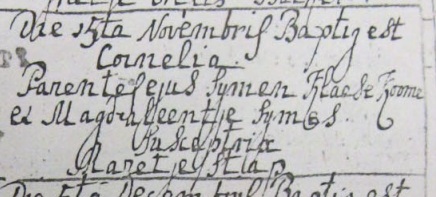 Die 15ta Novembris Baptiz est
Cornelia.
Parentes ejus Symen Klaese Koome
et Magdaleentje Symes.
Susceptrix
Maretje Stap
Die 5ta Decembris Baptiz est